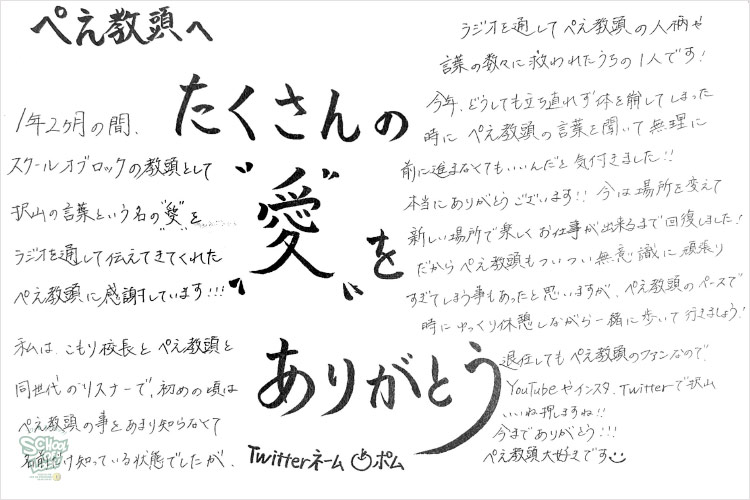 ぺえ教頭へ
たくさんの
"愛"を
ありがとう
1年2ヶ月の間、
スクールオブロックの教頭として
沢山の言葉という名の"愛"を
ラジオを通して伝えてきてくれた
ぺえ教頭に感謝しています!!!
私は、こもり校長とぺえ教頭と
同世代のリスナーで、初めの頃は
ぺえ教頭の事をあまり知らなくて
名前だけ知っている状態でしたが、
ラジオを通してぺえ教頭の人柄や
言葉の数々に救われたうちの1人です!
今年、どうしても立ち直れず体を崩してしまった
時にぺえ教頭の言葉を聞いて無理に
前に進まなくてもいいんだと気付きました!!
本当にありがとうございます!!今は場所を変えて
新しい場所で楽しくお仕事が出来るまで回復しました!
だからぺえ教頭もついつい無意識に頑張り
すぎてしまう事もあったと思いますが、ぺえ教頭のペースで
時にゆっくり休憩しながら一緒に歩いて行きましょう!
退任してもぺえ教頭のファンなので、
YouTubeやインスタ、Twitterで沢山
いいね押しますね!!
今までありがとう!!!
ぺえ教頭大好きです
Twitterネーム ポム
SCHOOL OF LOCK!